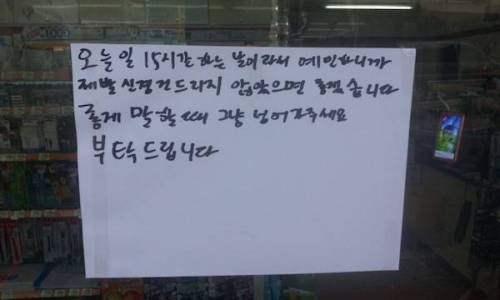 오늘 일 15시간 하는 날이라서 예민하니까
제발 신경 건드리지 않았으면 좋겠습니다
좋게 말할 때 그냥 넘어가주세요
부탁드립니다